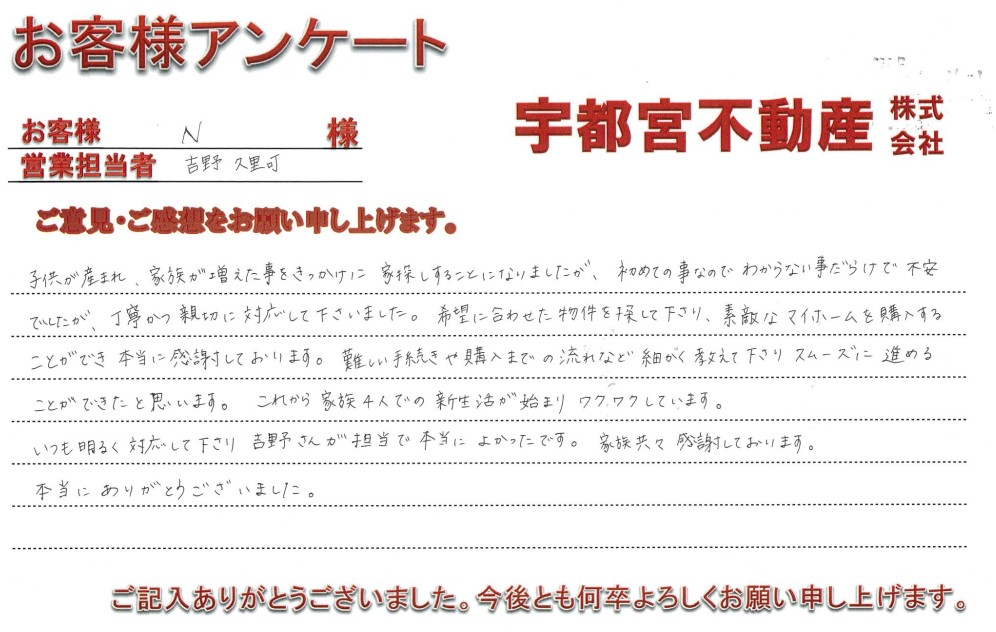 お客様アンケート
お客様 N 様
営業担当者 吉野 久里可
宇都宮不動産 株式会社
ご意見・ご感想をお願い申し上げます。
子供が産まれ、家族が増えた事をきっかけに 家探しすることになりましたが、 初めての事なので わからない事だらけで 不安
でしたが、丁寧かつ 親切に 対応して 下さいました。 希望に合わせた 物件を探して下さり、素敵な マイホームを購入する
ことができ 本当に 感謝しております。 難しい 手続きや 購入までの 流れなど 細かく 教えて下さり スムーズに 進める
ことができたと 思います。 これから 家族4人での 新生活が始まり ワクワクしています。
いつも明るく 対応して下さり 吉野さんが担当で 本当に よかったです。 家族共々 感謝しております。
本当に ありがとうございました。
ご記入ありがとうございました。今後とも何卒よろしくお願い申し上げます。